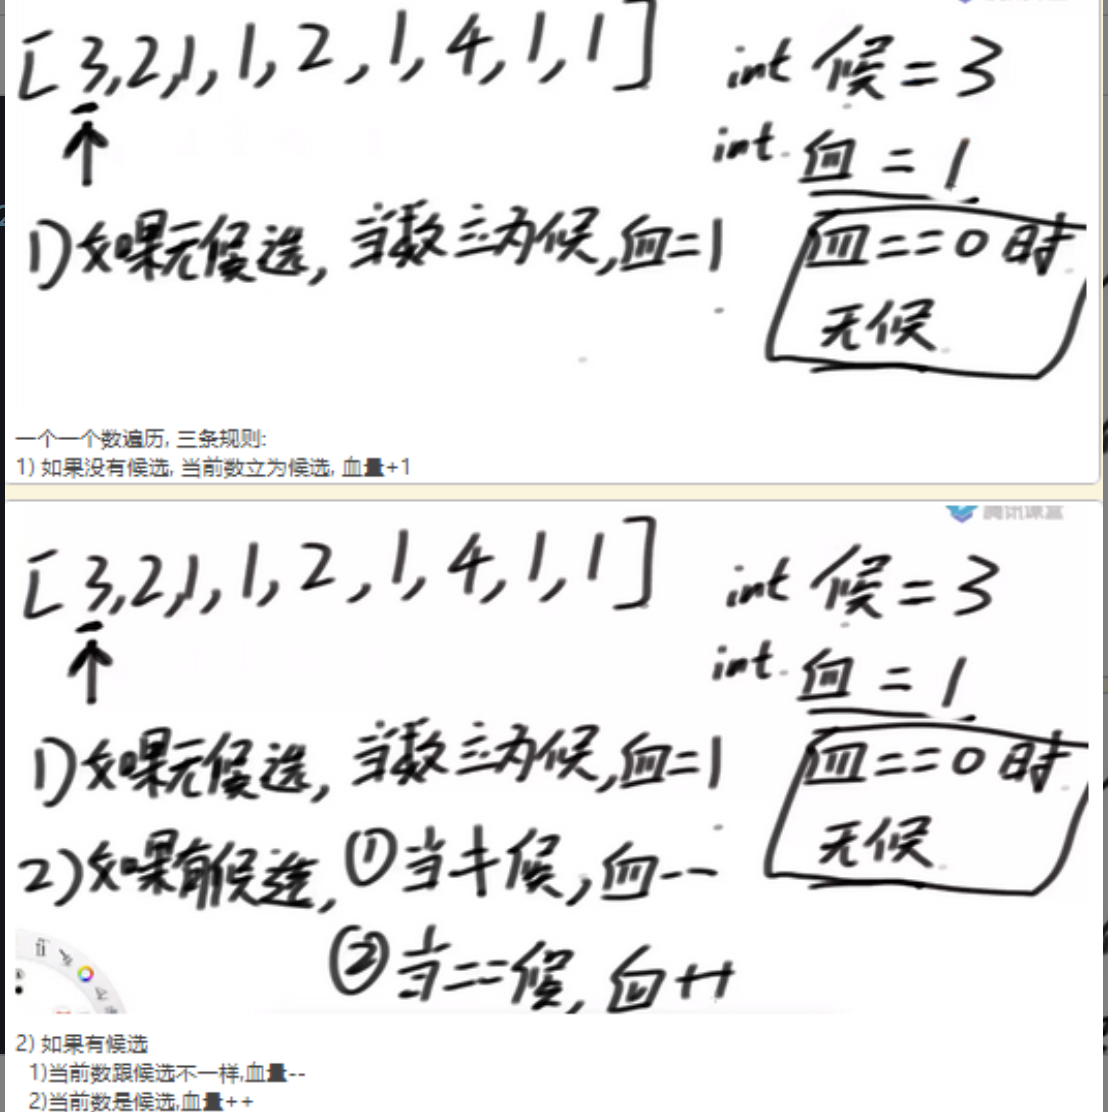 [3,2,1,1,2,1,4,1,1]
int 候=3
int 血=1
1)如果无候选,当数立为候,血=1
血==0时
无候
一个一个数遍历, 三条规则:
1) 如果没有候选, 当前数立为候选, 血量+1
腾讯课堂
[3,2,1,1,2,1,4,1,1]
int 候=3
int 血=1
1)如果无候选,当数立为候,血=1
血==0时
无候
2)如果有候选,①当≠候,血--
②当==候,血++
2) 如果有候选
1)当前数跟候选不一样,血量--
2)当前数是候选,血量++